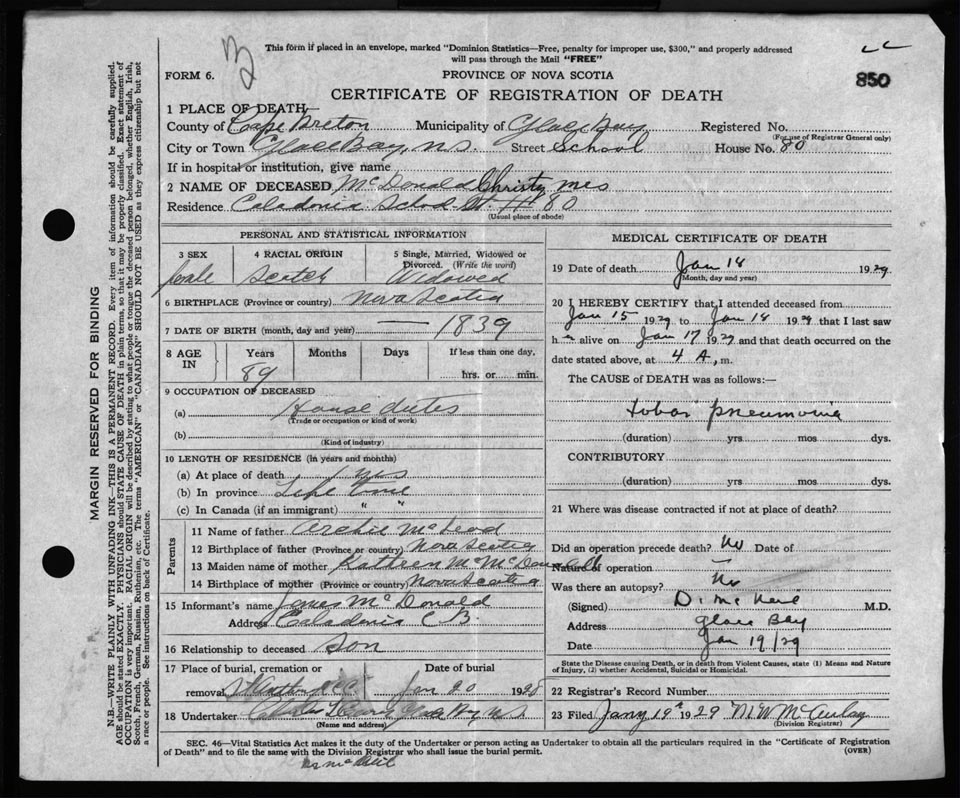 This form if placed in an envelope, marked "Dominion Statistics—Free, penalty for improper use, $300," and properly addressed
will pass through the Mail "FREE"
850
FORM 6.
PROVINCE OF NOVA SCOTIA
CERTIFICATE OF REGISTRATION OF DEATH
1 PLACE OF DEATH
County of Cape Breton Municipality of Glace Bay Registered No.
(For use of Registrar General only)
City or Town Glace Bay, N.S. Street School House No. 80
If in hospital or institution, give name
2 NAME OF DECEASED McDonald Christy Mrs
Residence Caladonia School St. H 80
(Usual place of abode)
PERSONAL AND STATISTICAL INFORMATION
3 SEX 4 RACIAL ORIGIN 5 Single, Married, Widowed or
Divorced. (Write the word)
Scotch Widowed
6 BIRTHPLACE (Province or country) Nova Scotia
7 DATE OF BIRTH (month, day and year) — 1839
8 AGE IN Years Months Days If less than one day,
89 hrs. or min.
9 OCCUPATION OF DECEASED
(a) House duties
(Trade or occupation or kind of work)
(b)
(Kind of industry)
10 LENGTH OF RESIDENCE (in years and months)
(a) At place of death yrs
(b) In province Life time
(c) In Canada (if an immigrant) " "
Parents
11 Name of father Archie McLeod
12 Birthplace of father (Province or country) Nova Scotia
13 Maiden name of mother Kathleen McDonald
14 Birthplace of mother (Province or country) Nova Scotia
15 Informant's name James McDonald
Address Caladonia C B.
16 Relationship to deceased Son
17 Place of burial, cremation or Date of burial
removal Jan 20 1928
18 Undertaker Glace Bay N.S.
(Name and address)
MEDICAL CERTIFICATE OF DEATH
19 Date of death Jan 18 1929.
(Month, day and year)
20 I HEREBY CERTIFY that I attended deceased from
Jan 15 1929 to Jan 18 1929 that I last saw
her alive on Jan 17 1929 and that death occurred on the
date stated above, at 4 A, m.
The CAUSE OF DEATH was as follows:—
Lobar pneumonia
(duration) yrs mos dys.
CONTRIBUTORY
(duration) yrs. mos dys.
21 Where was disease contracted if not at place of death?
Did an operation precede death? No Date of
Nature of operation
Was there an autopsy? No
(Signed) D. McNeil M.D.
Address Glace Bay
Date Jan 19/29
State the Disease causing Death, or in death from Violent Causes, state (1) Means and Nature
of Injury, and (2) whether Accidental, Suicidal or Homicidal.
22 Registrar's Record Number
23 Filed Jany 19th 1929 M W McAulay
(Division Registrar)
SEC. 46—Vital Statistics Act makes it the duty of the Undertaker or person acting as Undertaker to obtain all the particulars required in the "Certificate of Registration
of Death" and to file the same with the Division Registrar who shall issue the burial permit.
(OVER)
MARGIN RESERVED FOR BINDING
N.B.—WRITE PLAINLY WITH UNFADING INK—THIS IS A PERMANENT RECORD. Every item of information should be carefully supplied.
AGE should be stated EXACTLY. PHYSICIANS should STATE CAUSE OF DEATH in plain terms, so that it may be properly classified. Exact statement of
OCCUPATION is very important. RACIAL ORIGIN will be described by stating to what people or tongue the deceased person belonged, whether English, Irish,
Scotch, French, German, Russian, Ruthenian, etc. The terms "AMERICAN" or "CANADIAN" SHOULD NOT BE USED as they express citizenship but not
a race or people. See instructions on back of Certificate.